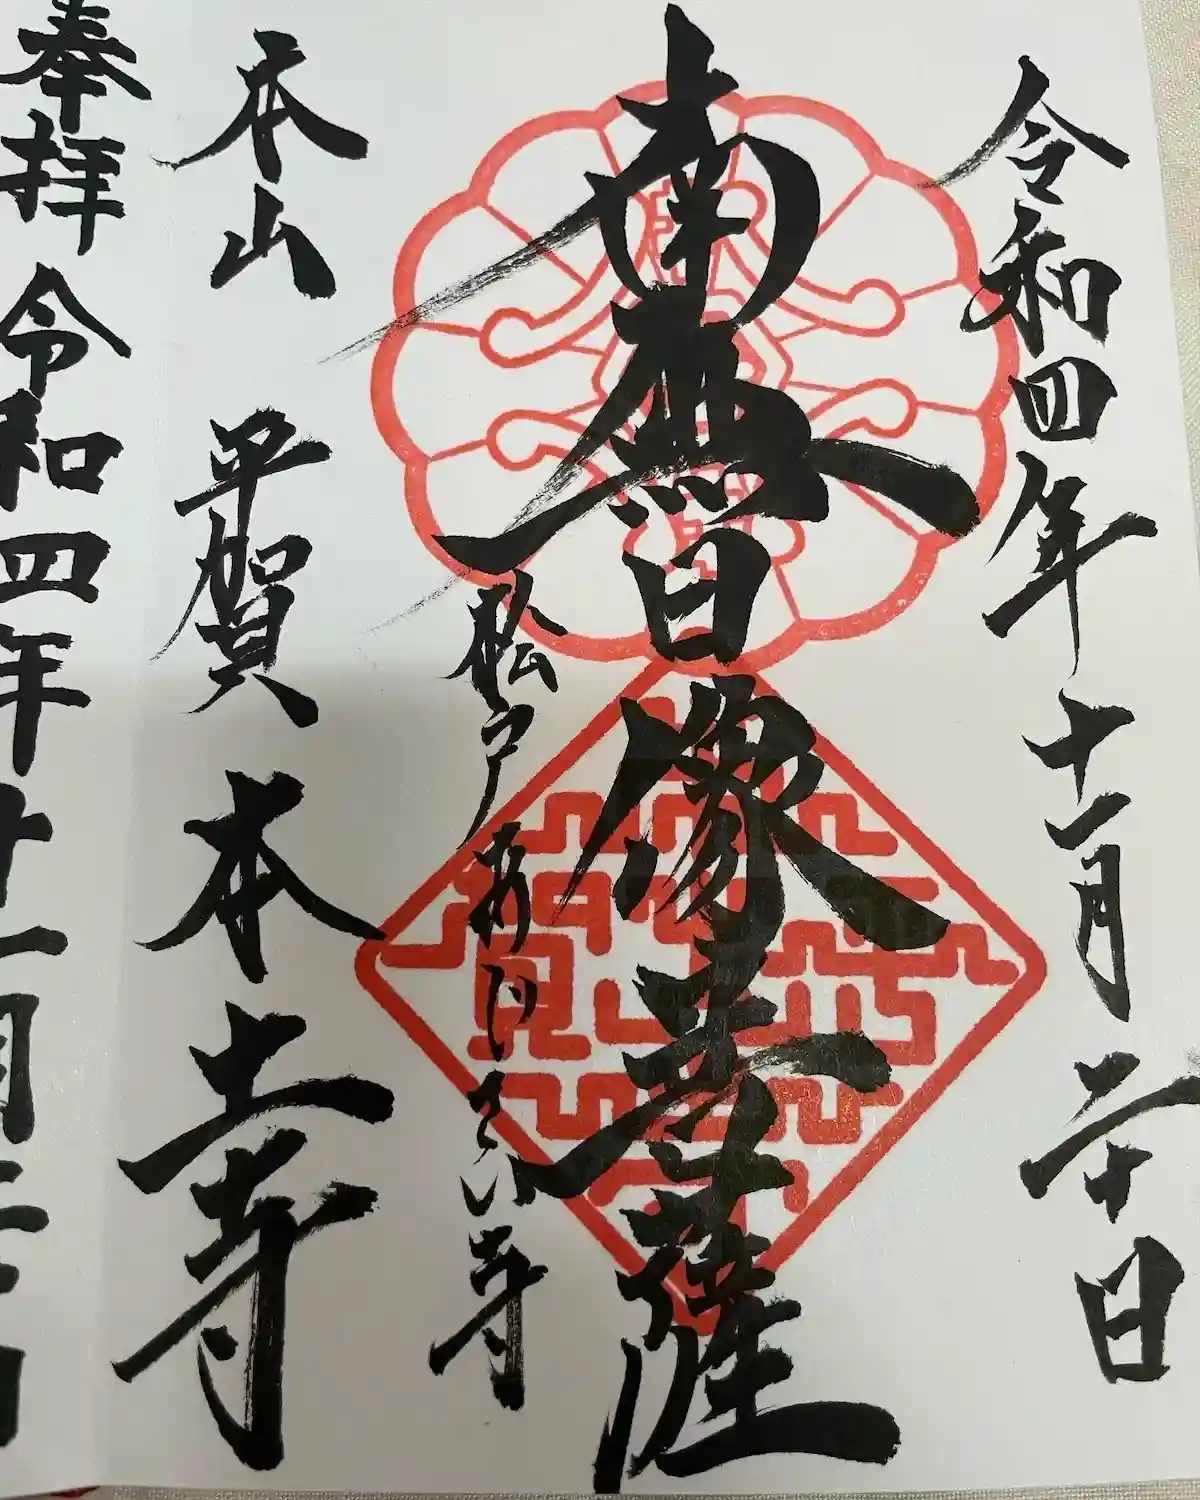 令和四年十一月二十日
南無日像菩薩
松戸あじさい寺
本山 平賀本土寺
奉拝 令和四年廿一月二十日